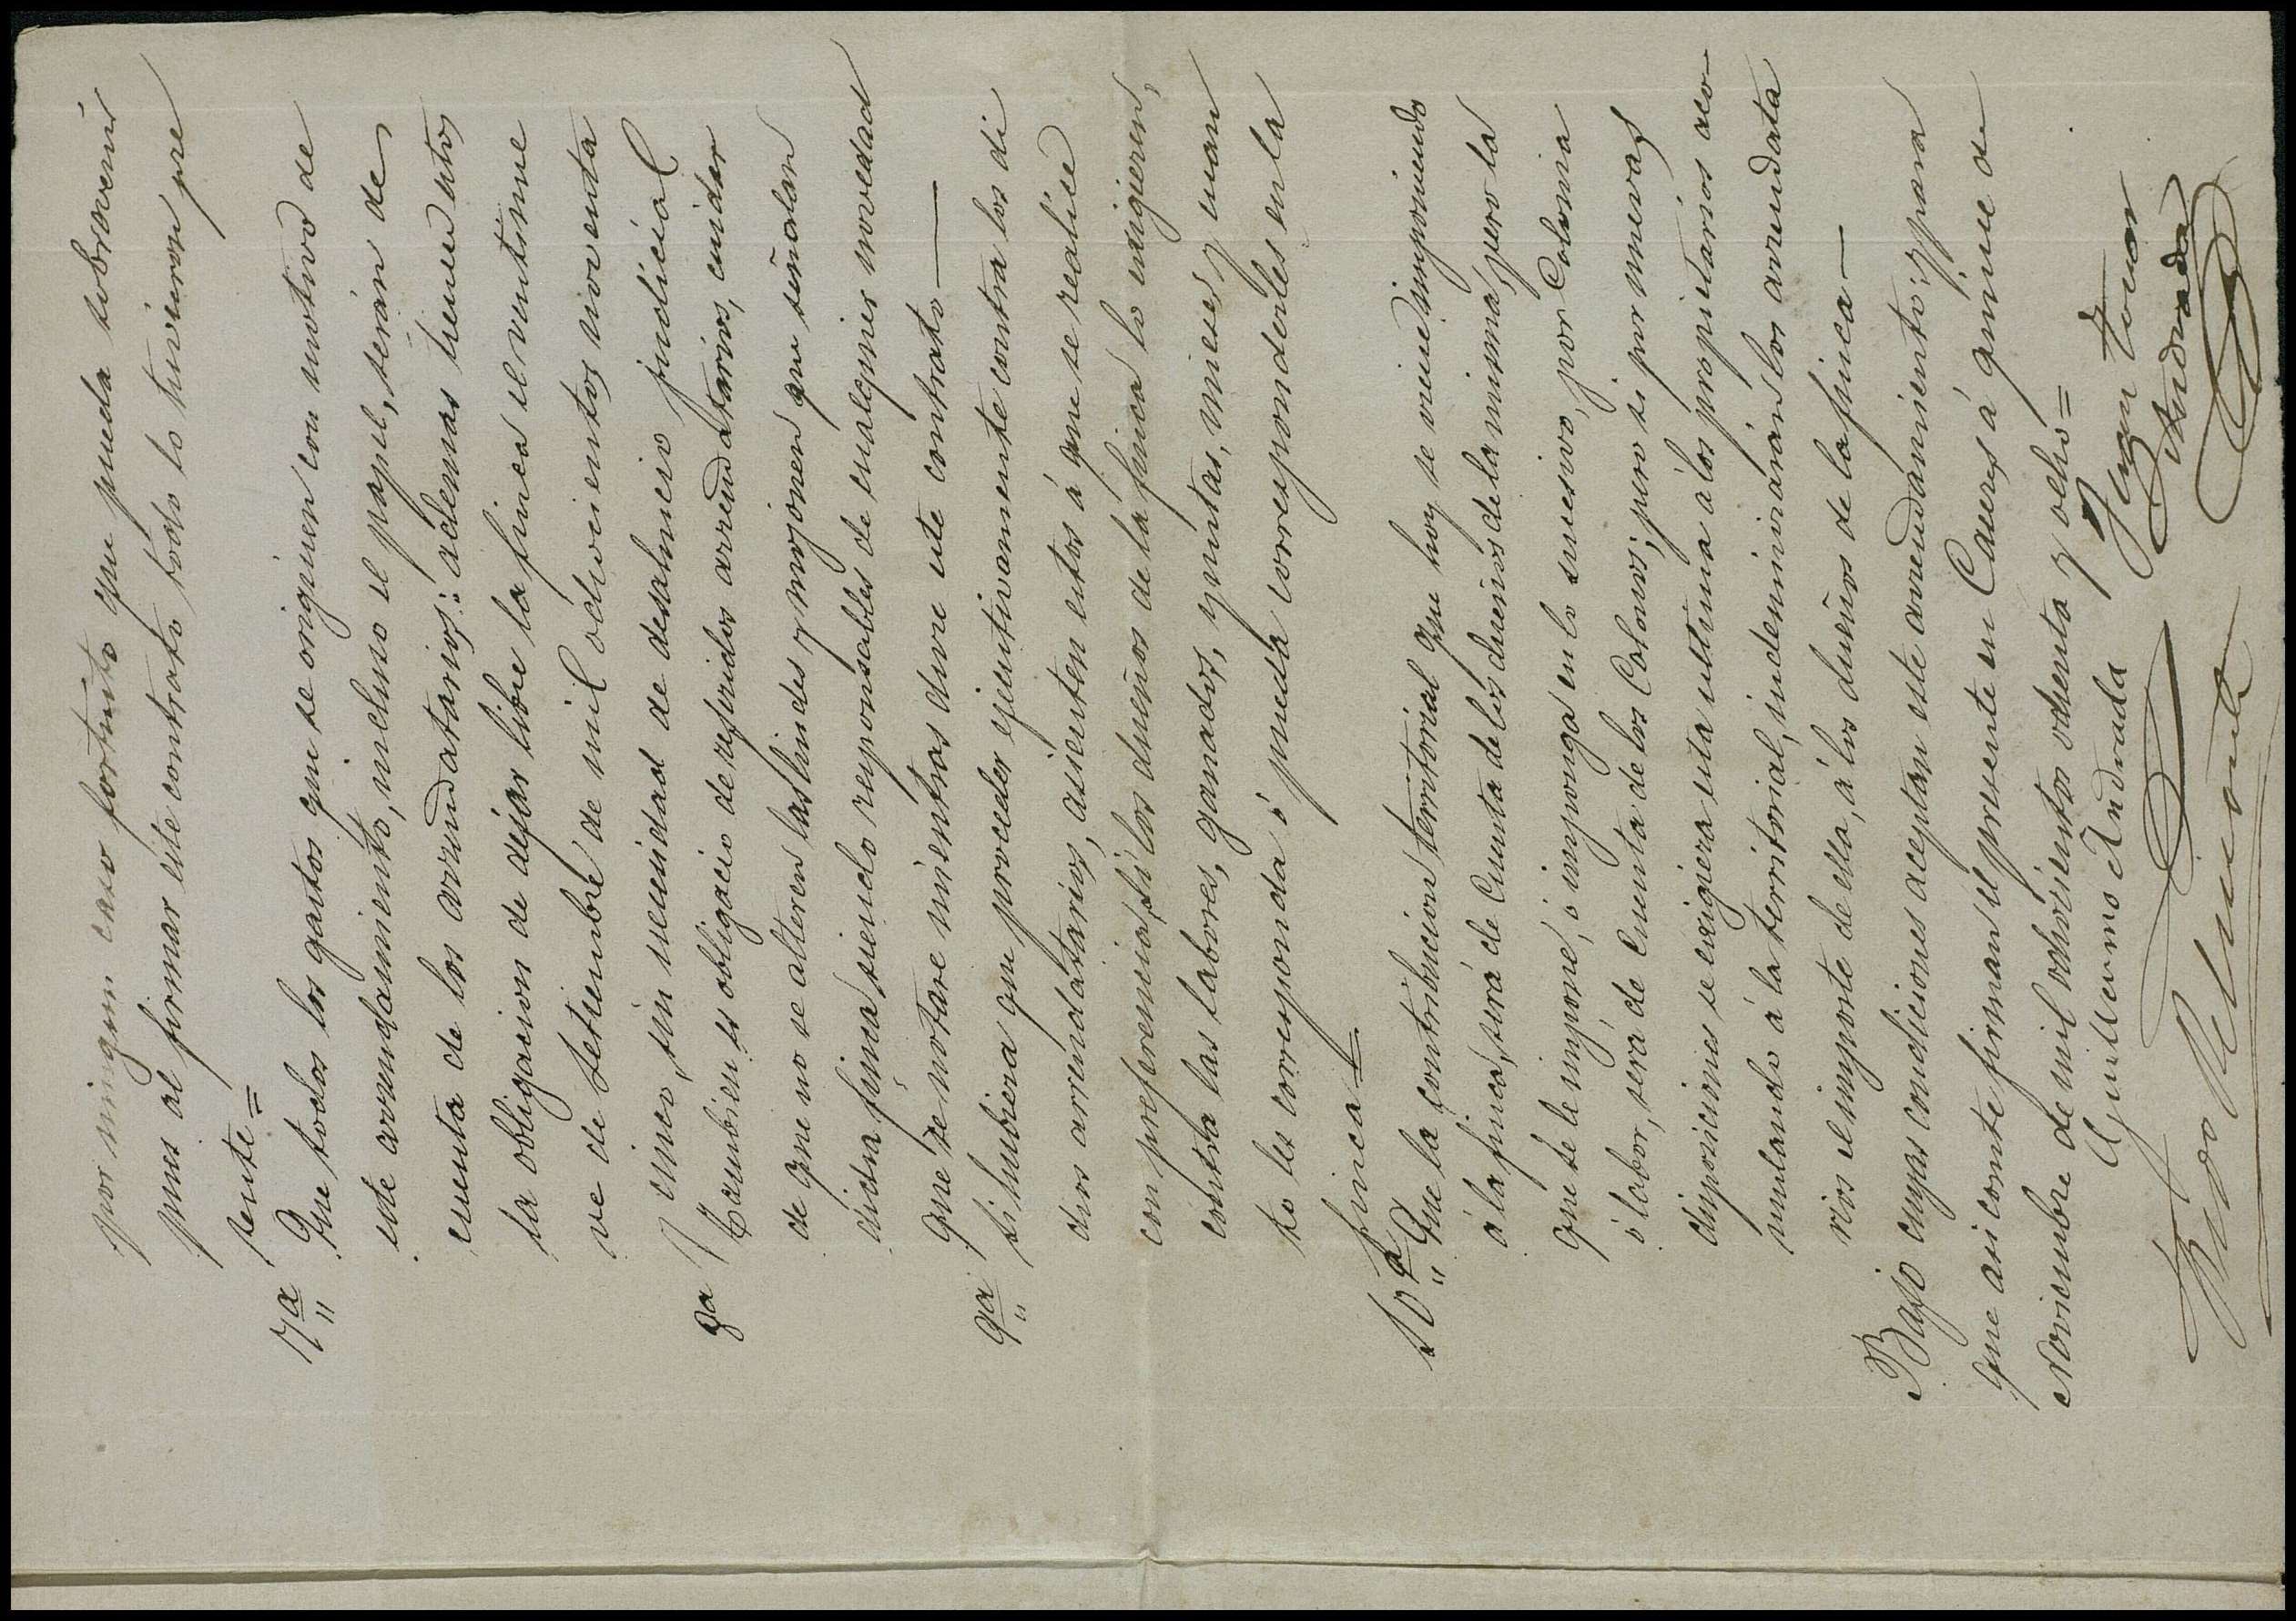 por ningun caso fortuito que pueda sobrevenir
pues al firmar este contrato todo lo tuvieron pre
sente=
7ª Que todos los gastos que se originen con motivo de
este arrendamiento, incluso el papel, serán de
cuenta de los arrendatarios: ademas tienen estos
la obligacion de dejar libre la finca el veintinue
ve de Setiembre de mil ochocientos noventa
y cinco, sin necesidad de desahucio judicial
8ª Tambien es obligacio de referidos arrendatarios, cuidar
de que no se alteren las lindes y mojones que señalan
dicha finca, siendo responsables de cualquier novedad
que se notare mientras dure este contrato—
9ª Si hubiera que proceder ejecutivamente contra los di
chos arrendatarios, asienten estos á que se realice
con preferencia, si los dueños de la finca lo exigieren,
contra las labores, ganados, yuntas, mieses y cuan
to les corresponda ó pueda corresponderles en la
finca=
10ª Que la contribucion territorial que hoy se viene imponiendo
á la finca, será de cuenta de los dueños de la misma, pero la
que se le impone, ó imponga en lo sucesivo, por Colonia
ó labor, será de cuenta de los Colonos; pero si por nuevas
disposiciones se exigiera esta ultima á los propietarios acu-
mulando á la territorial, indemnizarán los arrendata
rios el importe de ella, á los dueños de la finca—
Bajo cuyas condiciones aceptan este arrendamiento; y para
que asi conste firman el presente en Caceres á quince de
Noviembre de mil ochocientos ochenta y ocho=
Guillermo Andrada
Juan Tomas
Andrada